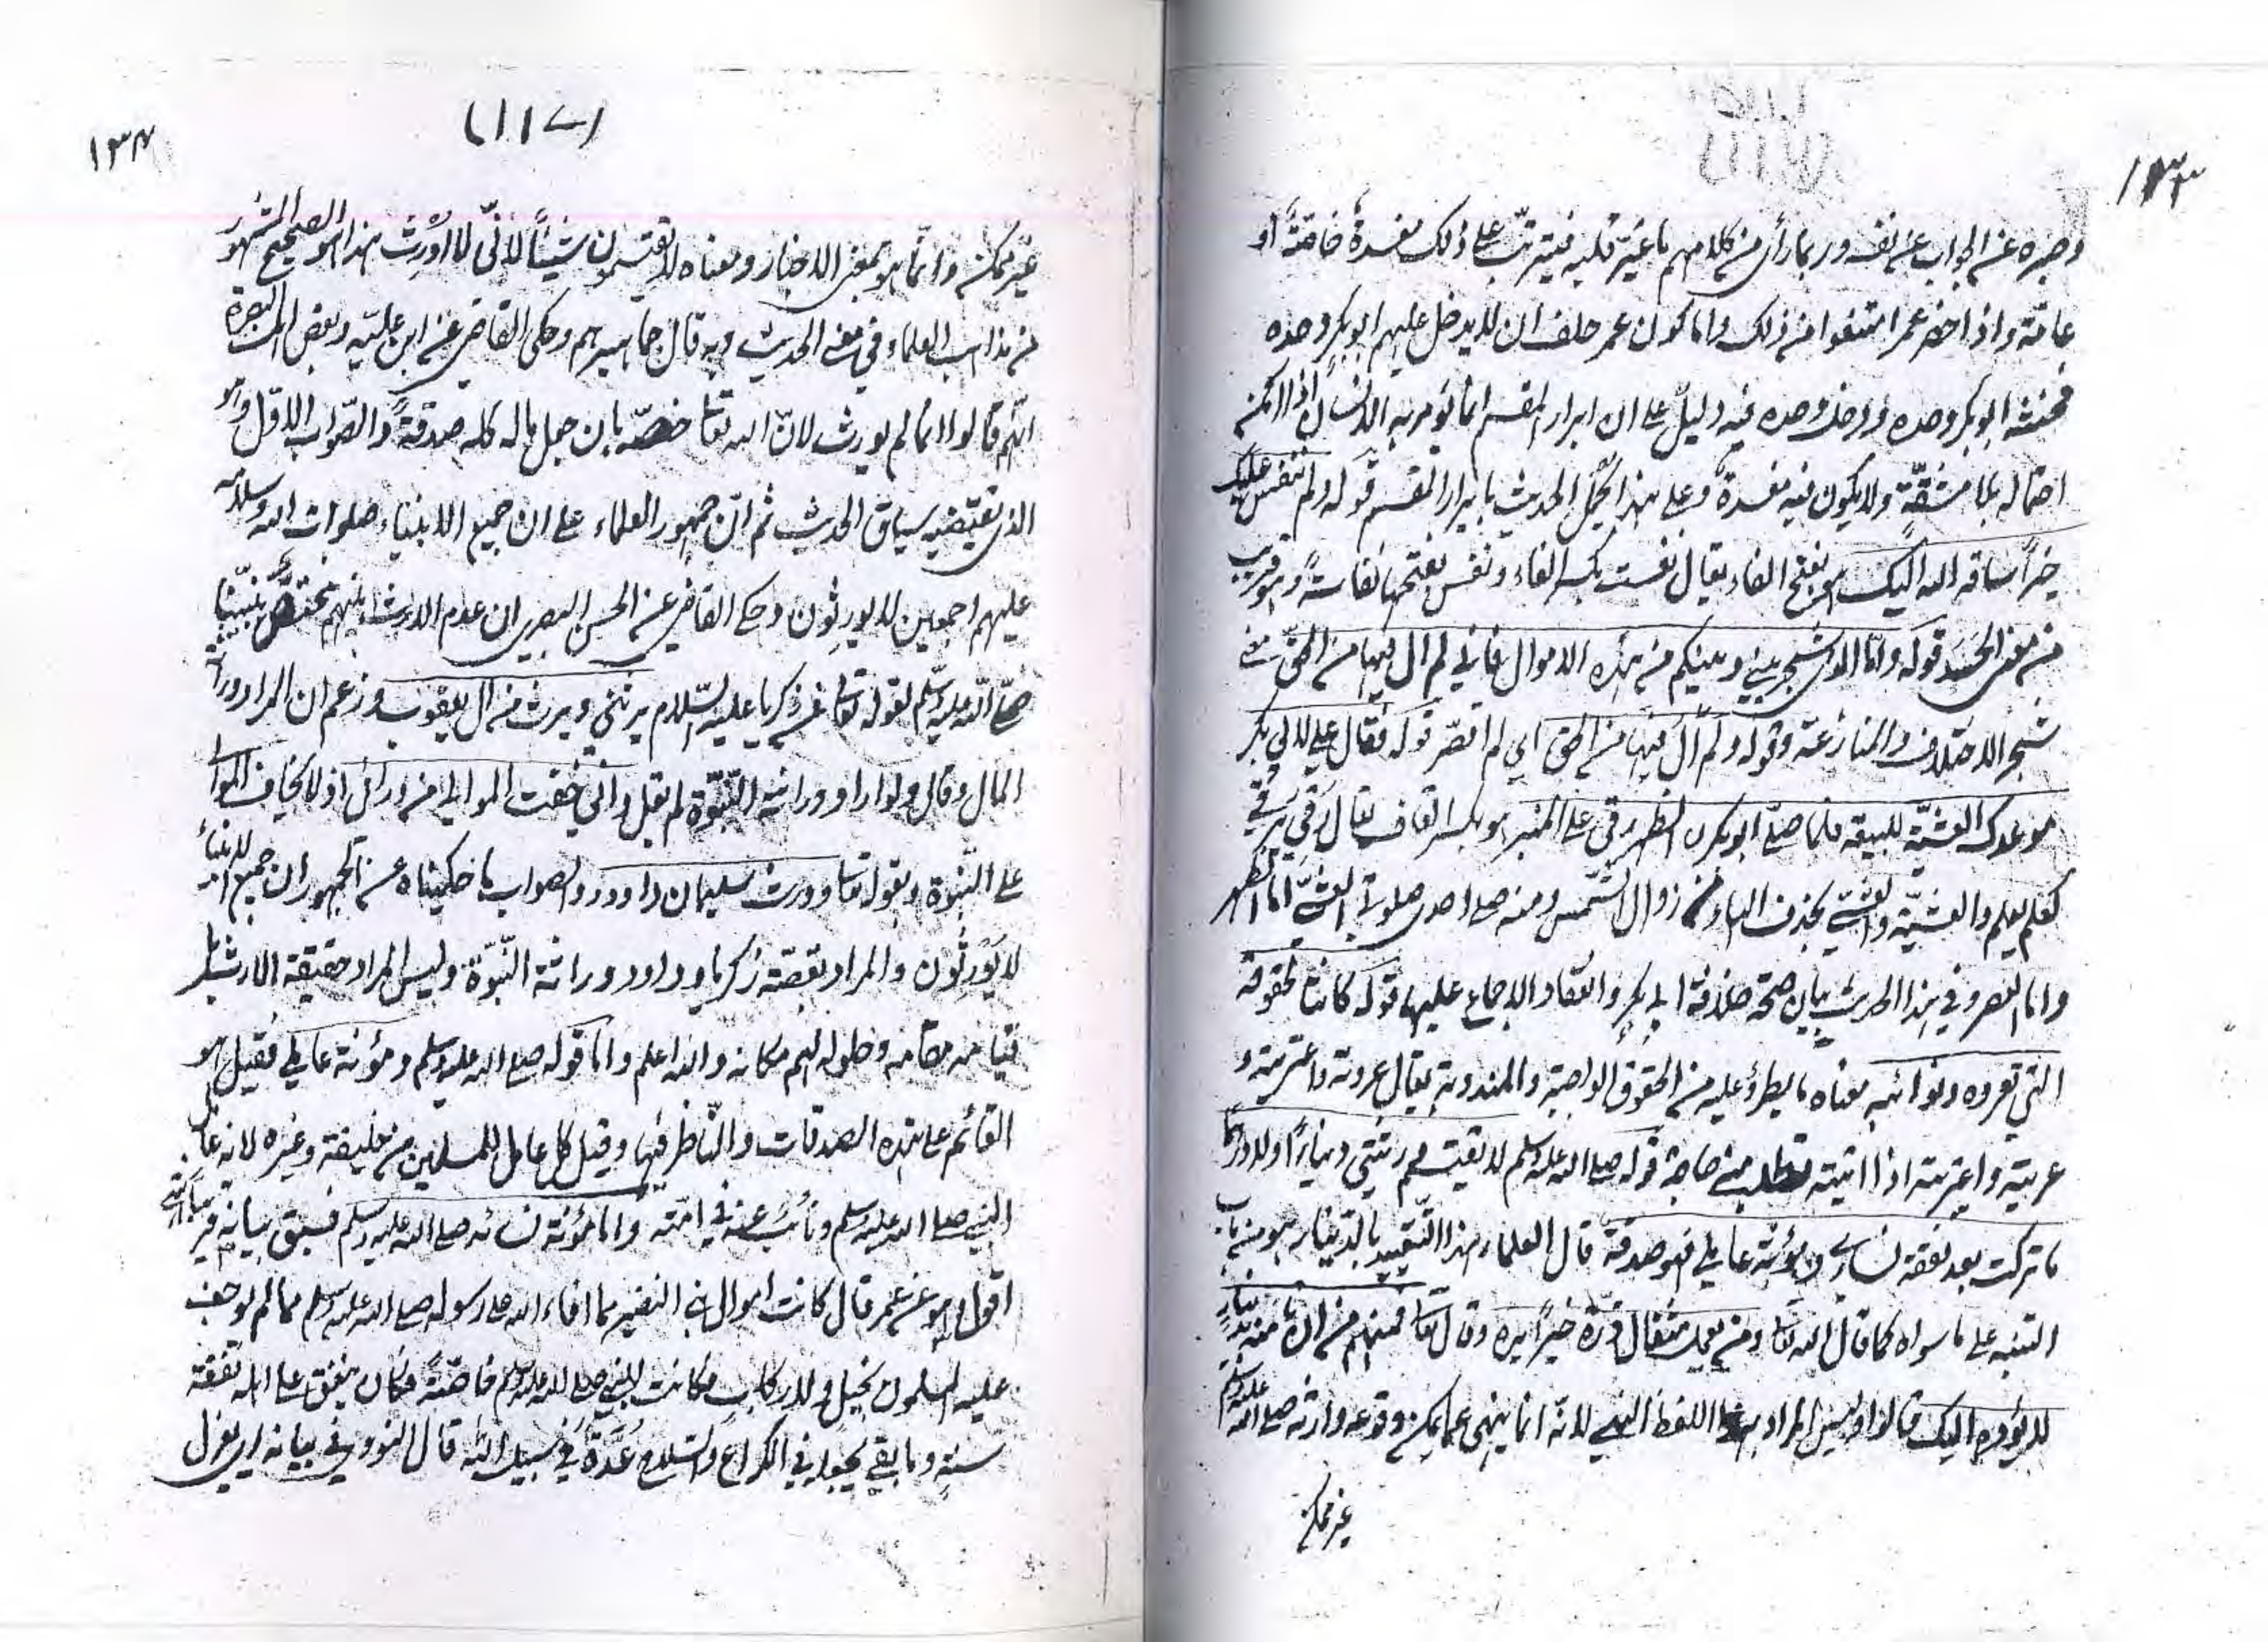 ١٣٣
وصبره عن الجواب عن نفسه وربما رأى من كلامهم ما غير قلبه فيترتب على ذلك مفسدة خاصة أو
عامة واذا حضر عمر امتنعوا من ذلك واما كون عمر حلف ان لا يدخل عليهم ابوبكر وحده
فحنثه ابوبكر وحده ودخل وحده فيه دليل على ان ابرار القسم انما يؤمر به الانسان اذا امكن
احتماله بلا مشقة ولا يكون فيه مفسدة وعلى هذا يحمل الحديث بابرار القسم قوله ولم ننفس عليك
خيرا ساقه الله اليك هو بفتح الفاء يقال نفست بكسر الفاء وننفس بفتحها نفاسة وهو قريب
من معنى الحسد قوله واما الذي شجر بيني وبينكم من هذه الاموال فاني لم ال فيها من الحق معنى
شجر الاختلاف والمنازعة وقوله ولم ال فيها من الحق اي لم اقصر قوله فقال علي لابي بكر
موعدك العشية للبيعة فلما صلى ابوبكر الظهر رقى على المنبر هو بكسر القاف يقال رقي يرقى
كعلم يعلم والعشية والعشي بحذف الهاء من زوال الشمس ومنه صلى احدى صلوتي العشي اما الظهر
واما العصر وفي هذا الحديث بيان صحة خلافة ابي بكر وانعقاد الاجماع عليها قوله كانتا لحقوقه
التي تعروه ونوائبه معناه ما يطرؤ عليه من الحقوق الواجبة والمندوبة يقال عروته واعتريته و
عريته واعتريته اذا اتيته تطلب منه حاجة قوله صلى الله عليه وسلم لا يقتسم ورثتي دينارا ولا درهما
ما تركت بعد نفقة نسائي ومؤنة عاملي فهو صدقة قال العلماء هذا التقييد بالدينار هو من باب
التنبه على ما سواه كما قال الله تعا ومن يعمل مثقال ذرة خيرا يره وقال تعا ومنهم من ان تأمنه بدينار
لا يؤده اليك قالوا وليس المراد بهذا اللفظ النهي لانه انما ينهى عما يمكن وقوعه وارثه صلى الله عليه وسلم
غير ممكن
(١١٧)
١٣٤
غير ممكن وانما هو بمعنى الاخبار ومعناه لا يقتسمون شيئا لاني لا اورث هذا هو الصحيح المشهور
من مذاهب العلماء في معنى الحديث وبه قال جماهيرهم وحكى القاضي عن ابن علية وبعض اهل البصرة
انهم قالوا انما لم يورث لان الله تعا خصه بان جعل ماله كله صدقة والصواب الاول وهو
الذي يقتضيه سياق الحديث ثم ان جمهور العلماء على ان جميع الانبياء صلوات الله وسلامه
عليهم اجمعين لا يورثون وحكى القاضي عن الحسن البصري ان عدم الارث بينهم مختص بنبينا
صلى الله عليه وسلم لقوله تعالى عن زكريا عليه السلام يرثني ويرث من ال يعقوب وزعم ان المراد وراثة
المال وقال ولو اراد وراثة النبوة لم يقل واني خفت الموالي من ورائي اذ لا يخاف الموالي
على النبوة وبقوله تعا وورث سليمان داوود والصواب ما حكيناه عن الجمهور ان جميع الانبياء
لا يورثون والمراد بقصة زكريا وداود وراثة النبوة وليس المراد حقيقة الارث بل
قيامه مقامه وحلوله لهم مكانه والله اعلم واما قوله صلى الله عليه وسلم ومؤنة عاملي فقيل هو
القائم على هذه الصدقات والناظر فيها وقيل كل عامل للمسلمين من خليفة وغيره لانه عامل
النبي صلى الله عليه وسلم ونائب عنه في امته واما مؤنة نسائه صلى الله عليه وسلم فسبق بيانه قريبا انتهى
اقول وهو عن عمر قال كانت اموال بني النضير مما افاء الله على رسوله صلى الله عليه وسلم مما لم يوجف
عليه المسلمون بخيل ولا ركاب فكانت للنبي صلى الله عليه وسلم خاصة فكان ينفق على اهله نفقة
سنة وما بقي يجعله في الكراع والسلاح عدة في سبيل الله قال النووي في بيانه اي يعزل